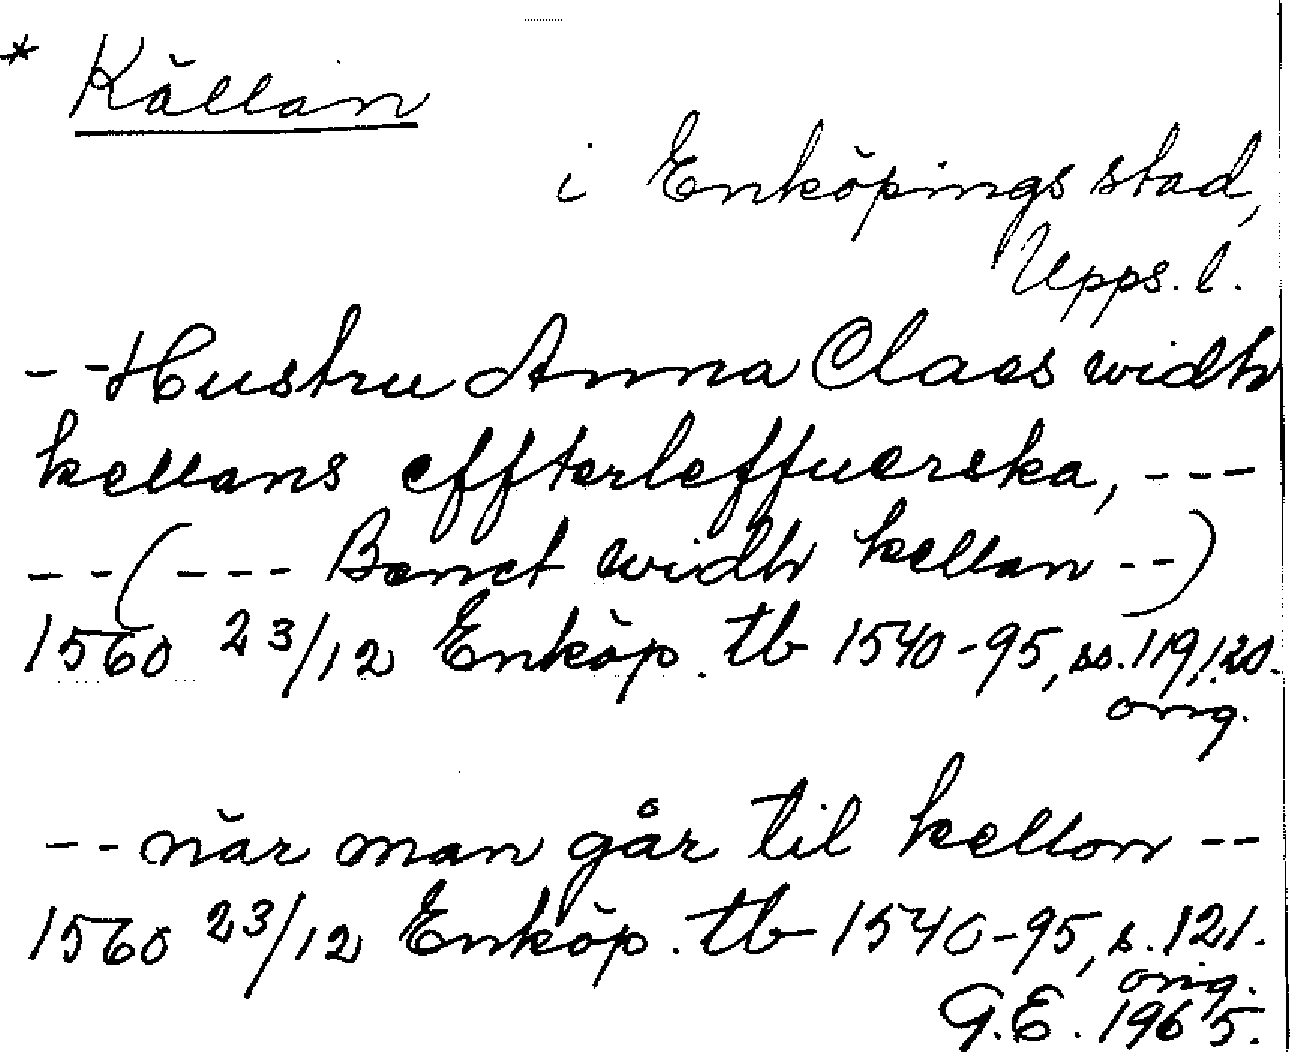 * Källan
i Enköpings stad,
Upps. l.
- - Hustru Anna Claes widh
kellans effterleffuerska, - - -
- - ( - - - Benct widh kellan - - )
1560 23/12 Enköp. tb 1540-95, ss. 119, 120.
orig.
- - när man går til kellon - -
1560 23/12 Enköp. tb 1540-95, s. 121.
orig.
G.E. 1965.